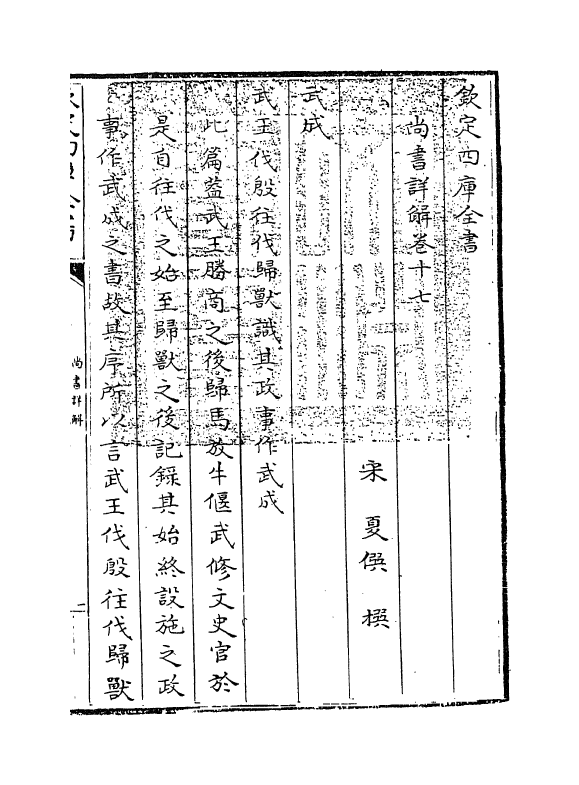 欽定四庫全書
尚書詳解卷十七
宋 夏僎 撰
武成
武王伐殷往伐歸獸識其政事作武成
此篇葢武王勝商之後歸馬放牛偃武修文史官於
是自往伐之始至歸獸之後記錄其始終設施之政
事作武成之書故其序所以言武王伐殷往伐歸獸
尚書詳解